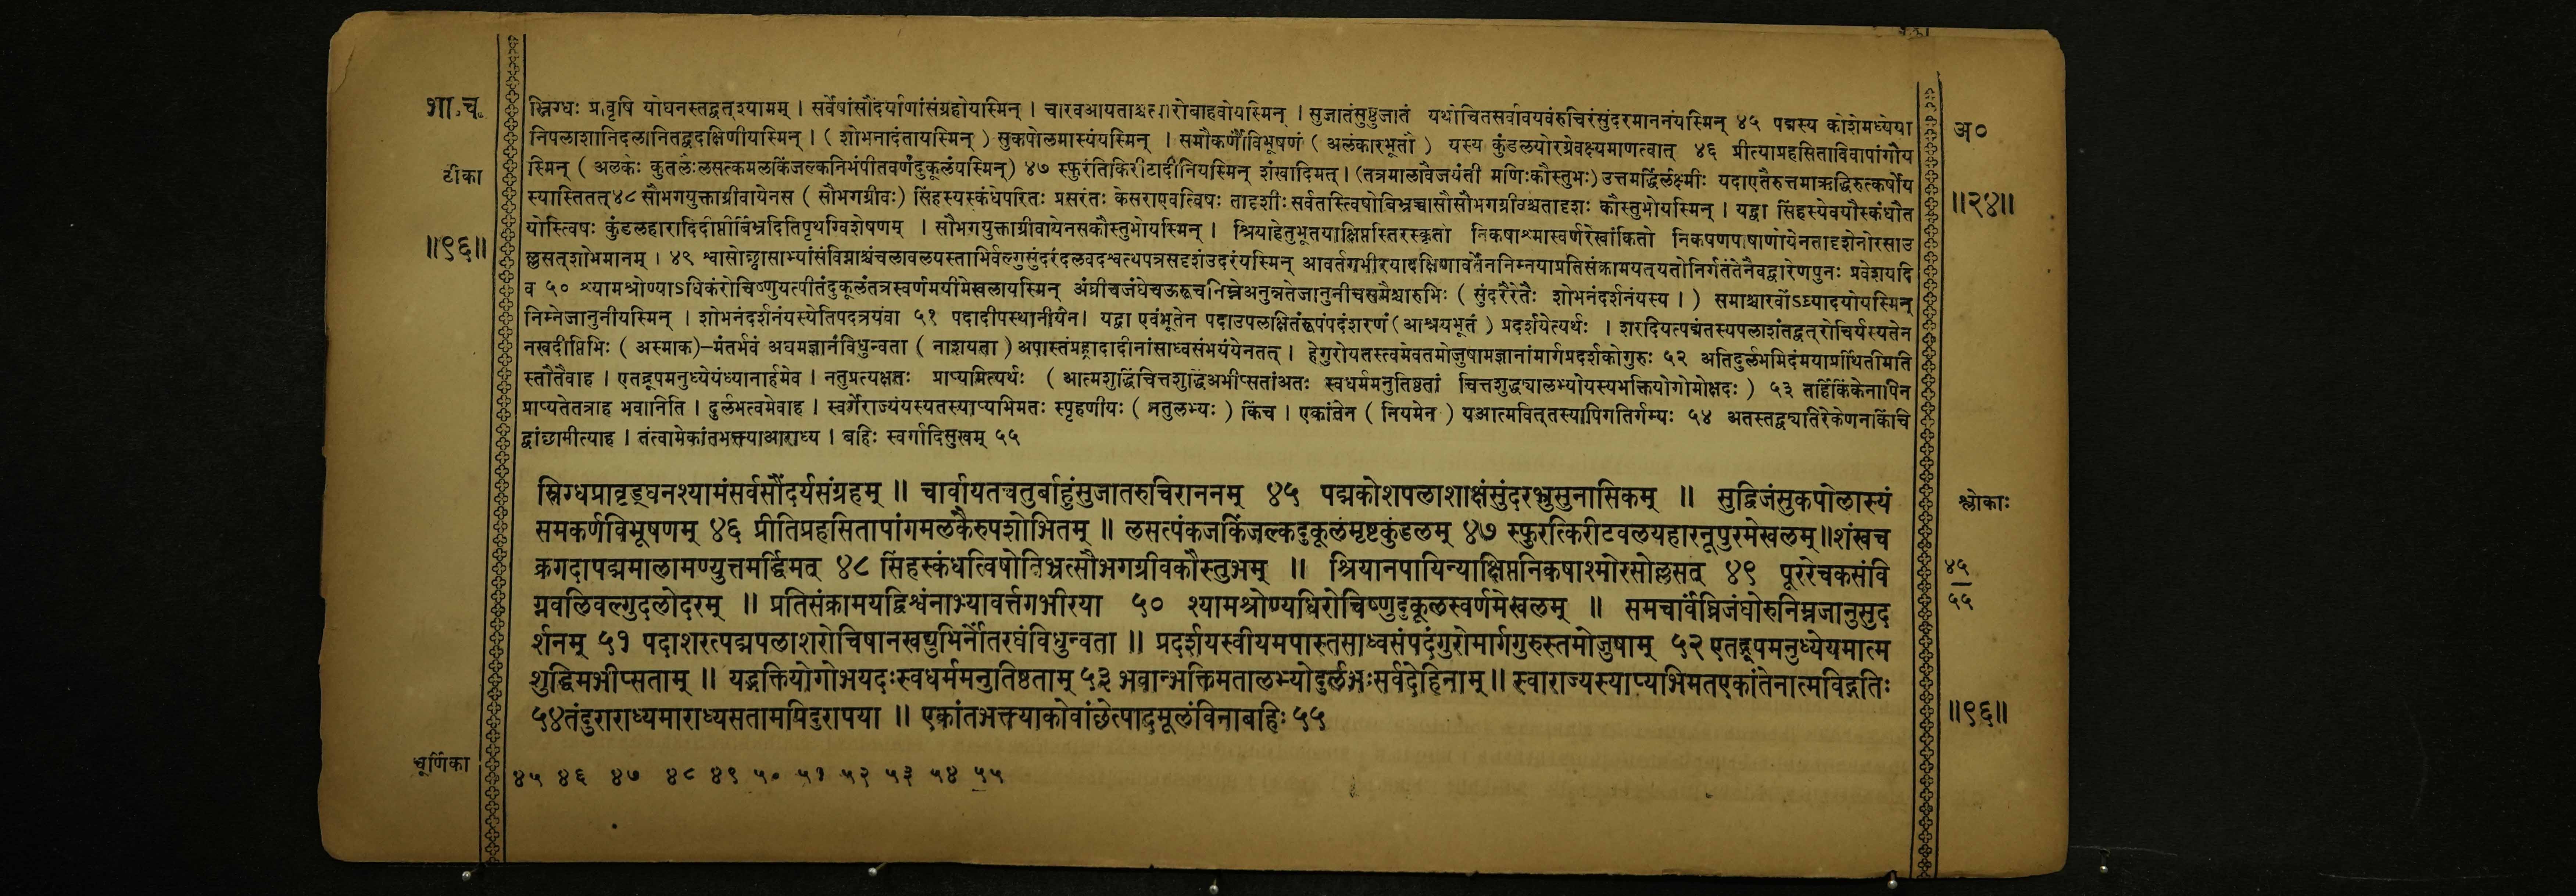 भा.च.
टीका
॥९६॥
स्निग्धः प्रावृषि योघनस्तद्वत्श्यामम् । सर्वेषांसौंदर्याणांसंग्रहोयस्मिन् । चारवआयताश्चत्वारोबाहवोयस्मिन् । सुजातंसुष्ठुजातं यथोचितसर्वावयवंरुचिरंसुंदरमाननंयस्मिन् ४५ पद्मस्य कोशेमध्येया
निपलाशानिदलानितद्वदक्षिणीयस्मिन् । ( शोभनादंतायस्मिन् ) सुकपोलमास्यंयस्मिन् । समौकर्णौविभूषणं ( अलंकारभूतौ ) यस्य कुंडलयोरग्रेवक्ष्यमाणत्वात् ४६ प्रीत्याप्रहसिताविवापांगौय
स्मिन् ( अलकैः कुंतलैःलसत्कमलकिंजल्कनिभंपीतवर्णंदुकूलंयस्मिन्) ४७ स्फुरंतिकिरीटादीनियस्मिन् शंखादिमत् । (तत्रमालावैजयंती मणिःकौस्तुभः) उत्तमर्द्धिर्लक्ष्मीः यदाएतैरुत्तमाऋद्धिरुत्कर्षोय
स्यास्तितत्४८ सौभगयुक्ताग्रीवायेनस ( सौभगग्रीवः) सिंहस्यस्कंधेपरितः प्रसरंतः केसराएवत्विषः तादृशीःसर्वतस्त्विषोबिभ्रच्चासौसौभगग्रीवश्चतादृशः कौस्तुभोयस्मिन् । यद्वा सिंहस्येवयौस्कंधौत
योस्त्विषः कुंडलहारादिदीप्तीर्बिभ्रदितिपृथग्विशेषणम् । सौभगयुक्ताग्रीवायेनसकौस्तुभोयस्मिन् । श्रियाहेतुभूतयाक्षिप्तस्तिरस्कृतो निकषाश्मास्वर्णरेखांकितो निकषणपाषाणोयेनतादृशेनोरसाउ
ल्लसत्शोभमानम् । ४९ श्वासोच्छ्वासाभ्यांसंविग्नाश्चंचलावलयस्ताभिर्वल्गुसुंदरंदलवदश्वत्थपत्रसदृशंउदरंयस्मिन् आवर्तगभीरयादक्षिणावर्तेननिम्नयाप्रतिसंक्रामयत्यतोनिर्गतंतेनैवद्वारेणपुनः प्रवेशयदि
व ५० श्यामश्रोण्याऽधिकंरोचिष्णुयत्पीतंदुकूलंतत्रस्वर्णमयीमेखलायस्मिन् अंघ्रीचजंघेचऊरूचनिम्नेअनुन्नतेजानुनीचसमैश्चारुभिः ( सुंदरैरेतैः शोभनंदर्शनंयस्य । ) समाश्चारवोंऽघ्र्यादयोयस्मिन्
निम्नेजानुनीयस्मिन् । शोभनंदर्शनंयस्येतिपदत्रयंवा ५१ पदादीपस्थानीयेन। यद्वा एवंभूतेन पदाउपलक्षितंरूपंपदंशरणं(आश्रयभूतं ) प्रदर्शयेत्यर्थः । शरदियत्पद्मंतस्यपलाशंतद्वत्रोचिर्यस्यतेन
नखदीप्तिभिः ( अस्माक)—मंतर्भवं अघमज्ञानंविधुन्वता ( नाशयता ) अपास्तंप्रह्रादादीनांसाध्वसंभयंयेनतत् । हेगुरोयतस्त्वमेवतमोजुषामज्ञानांमार्गप्रदर्शकोगुरुः ५२ अतिदुर्लभमिदंमयाप्रार्थितमिति
स्तौतैवाह । एतद्रूपमनुध्येयंध्यानार्हमेव । नतुप्रत्यक्षतः प्राप्यमित्यर्थः ( आत्मशुद्धिंचित्तशुद्धिंअभीप्सतांअतः स्वधर्ममनुतिष्ठतां चित्तशुद्ध्यालभ्योयस्यभक्तियोगोमोक्षदः ) ५३ तर्हिकिंकेनापिन
प्राप्यतेतत्राह भवानिति । दुर्लभत्वमेवाह । स्वर्गेराज्यंयस्यतस्याप्यभिमतः स्पृहणीयः ( नतुलभ्यः ) किंच । एकांतेन ( नियमेन ) यआत्मवित्तस्यापिगतिर्गम्यः ५४ अतस्तद्व्यतिरेकेणनकिंचि
द्वांछामीत्याह । तंत्वामेकांतभक्त्याआराध्य । बहिः स्वर्गादिसुखम् ५५
स्निग्धप्रावृड्घनश्यामंसर्वसौंदर्यसंग्रहम् ॥ चार्वायतचतुर्बाहुंसुजातरुचिराननम् ४५ पद्मकोशपलाशाक्षंसुंदरभ्रुसुनासिकम् ॥ सुद्विजंसुकपोलास्यं
समकर्णविभूषणम् ४६ प्रीतिप्रहसितापांगमलकैरुपशोभितम् ॥ लसत्पंकजकिंजल्कदुकूलंमृष्टकुंडलम् ४७ स्फुरत्किरीटवलयहारनूपुरमेखलम्॥शंखच
क्रगदापद्ममालामण्युत्तमर्द्धिमत् ४८ सिंहस्कंधत्विषोबिभ्रत्सौभगग्रीवकौस्तुभम् ॥ श्रियानपायिन्याक्षिप्तनिकषाश्मोरसोल्लसत् ४९ पूररेचकसंवि
ग्नवलिवल्गुदलोदरम् ॥ प्रतिसंक्रामयद्विश्वंनाभ्यावर्त्तगभीरया ५० श्यामश्रोण्यधिरोचिष्णुदुकूलस्वर्णमेखलम् ॥ समचार्वंघ्रिजंघोरुनिम्नजानुसुद
र्शनम् ५१ पदाशरत्पद्मपलाशरोचिषानखद्युभिर्नोंतरघंविधुन्वता ॥ प्रदर्शयस्वीयमपास्तसाध्वसंपदंगुरोमार्गगुरुस्तमोजुषाम् ५२ एतद्रूपमनुध्येयमात्म
शुद्धिमभीप्सताम् ॥ यद्भक्तियोगोभयदःस्वधर्ममनुतिष्ठताम् ५३ भवान्भक्तिमतालभ्योदुर्लभःसर्वदेहिनाम् ॥ स्वाराज्यस्याप्यभिमतएकांतेनात्मविद्गतिः
५४तंदुराराध्यमाराध्यसतामपिदुरापया ॥ एकांतभक्त्याकोवांछेत्पादमूलंविनाबहिः ५५
चूर्णिका
४५ ४६ ४७ ४८ ४९ ५० ५१ ५२ ५३ ५४ ५५
अ०
॥२४॥
श्लोकाः
४५
५५
॥९६॥